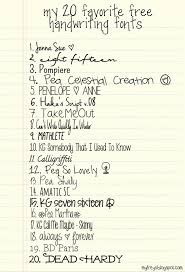 my 20 favorite free
handwriting fonts
1. Jenna Sue ♡
2. eight fifteen
3. Pompiere
4. Pea Celestial Creation
5. PENELOPE ANNE
6. Haika's Script v.08
7. Take Me Out
8. Can't Wait Quality In Wader
9. MATHLETE
10. KG Somebody That I Used To Know
11. Calligraffiti
12. Pea So Lovely
13. Pea Shelly
14. AMATIC SC
15. KG seven sixteen
16. Pea Martina
17. KG Call Me Maybe - Skinny
18. always forever
19. BD Paris
20. DEAD HARDY